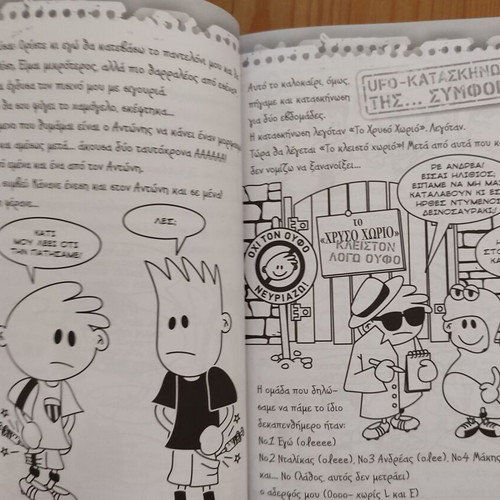 κι εγώ θα κατεβάσω το παντελόνι μου και
Είμαι μικρότερος, αλλά πιο θαρραλέος από
τον πισινό μου με σιγουριά.
θα του φύγει το χαμόγελο, σκέφτηκα...
που θυμάμαι είναι ο Αντώνης να κάνει έναν
και αμέσως μετά... άκουσα δύο ταυτόχρονα ΑΑΑΑΑΑ!
εμένα και ένα από τον Αντώνη.
Κάνανε ένεση και στον Αντώνη και σε μένα!
ΚΑΤΙ
ΜΟΥ ΛΕΕΙ ΟΤΙ
ΤΗΝ ΠΑΤΗΣΑΜΕ!
ΛΕΣ;
UFO-ΚΑΤΑΣΚΗΝΩ
ΤΗΣ... ΣΥΜΦΟ
Αυτό το καλοκαίρι, όμως,
πήγαμε και κατασκήνωση
για δύο εβδομάδες.
Η κατασκήνωση λεγόταν «Το Χρυσό Χωριό». Λεγόταν.
Τώρα θα λέγεται «Το κλειστό χωριό»! Μετά από αυτά που
δεν νομίζω να ξανανοίξει...
ΡΕ ΑΝΔΡΕΑ!
ΕΙΣΑΙ ΗΛΙΘΙΟΣ;
ΕΙΠΑΜΕ ΝΑ ΜΗ ΜΑΣ
ΚΑΤΑΛΑΒΟΥΝ ΚΙ ΕΣΥ
ΗΡΘΕΣ ΝΤΥΜΕΝΟΣ
ΔΕΙΝΟΣΑΥΡΑΚΙ;
ΟΧΙ ΤΟΝ ΟΥΦΟ
ΝΕΥΡΙΑΖΩ!
ΤΟ
«ΧΡΥΣΟ ΧΩΡΙΟ»
ΚΛΕΙΣΤΟΝ
ΛΟΓΩ ΟΥΦΟ
Η ομάδα που δηλώ-
σαμε να πάμε το ίδιο
δεκαπενθήμερο ήταν:
Νο1 Εγώ (oleeee)
Νο2 Νταλίκας (olee), Νο3 Ανδρέας (olee), Νο4 Μάκης
και... Νο (λάθος, αυτός δεν μετράει)
ο αδερφός μου (Οοοο- χωρίς L και E)